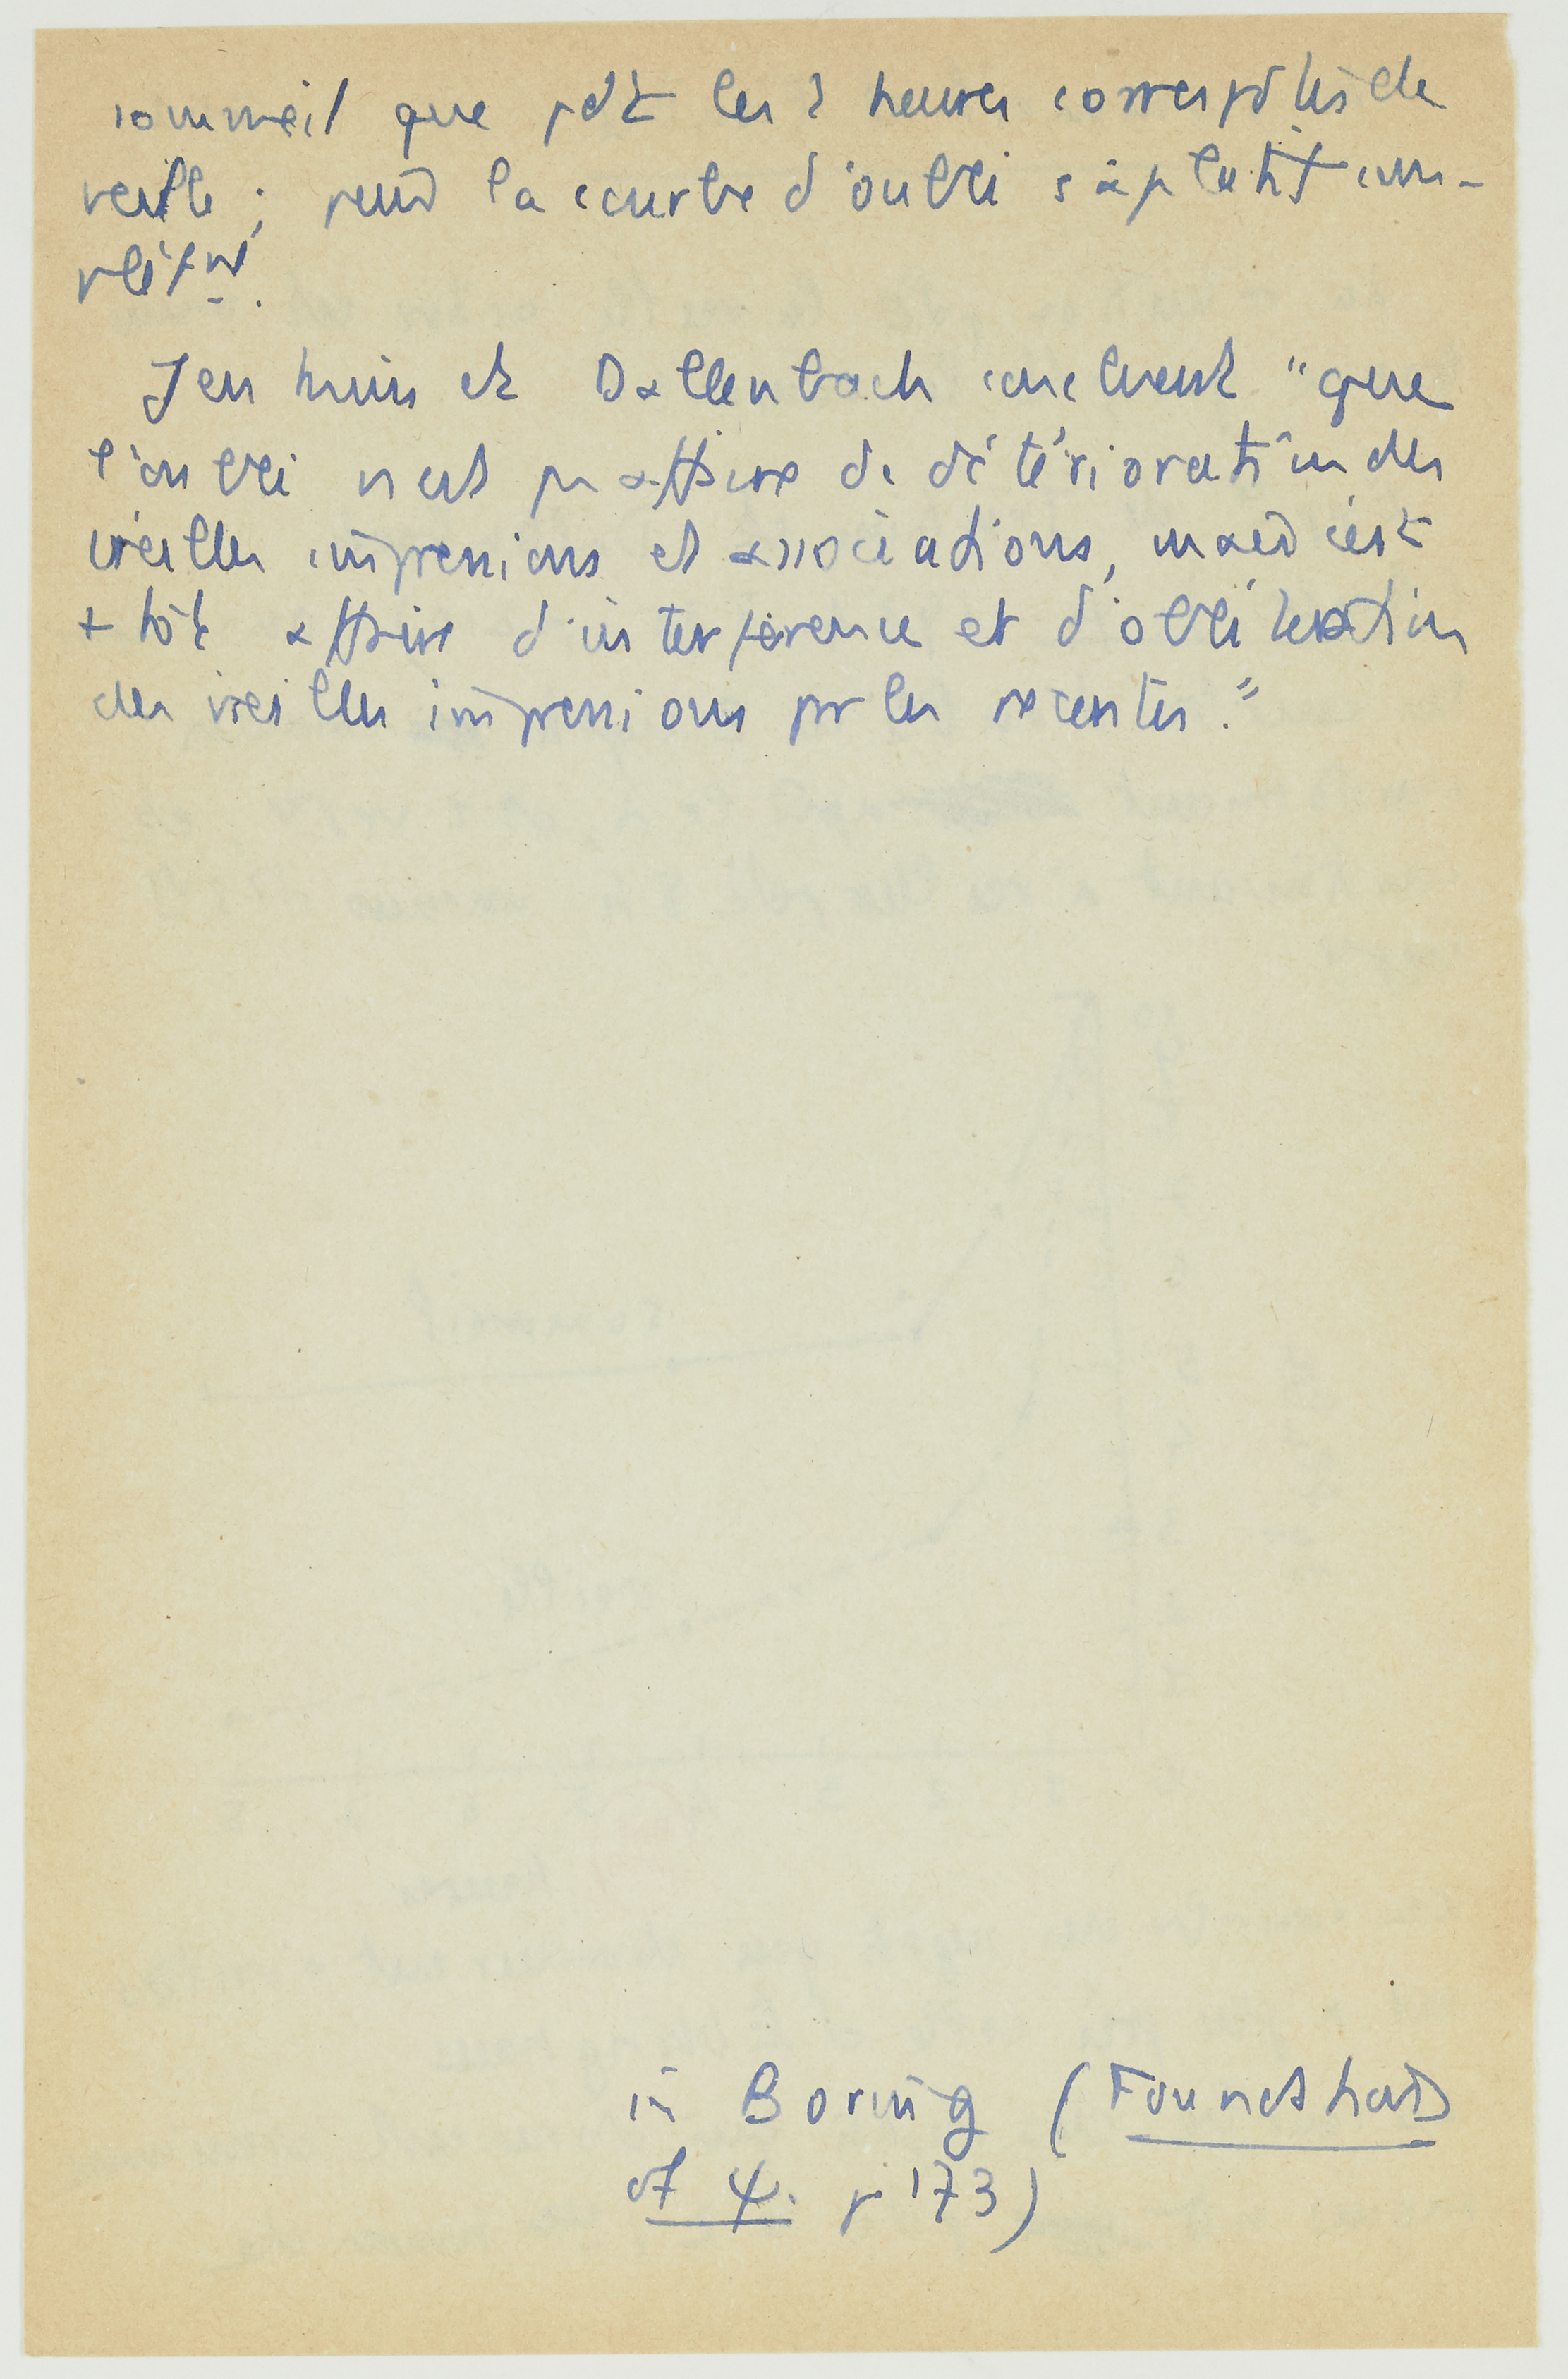 sommeil que pdt les 2 heures correspdtes de
veille ; puis la courbe d'oubli s'aplatit com-
plètmt.
Jenkins et Dallenbach concluent "que
l'oubli n'est pas affaire de détérioration des
vieilles impressions et associations, mais c'est
+ tôt affaire d'interférence et d'oblitération
des vieilles impressions par les récentes."
in Boring (Foundations
of ψ. p 173)